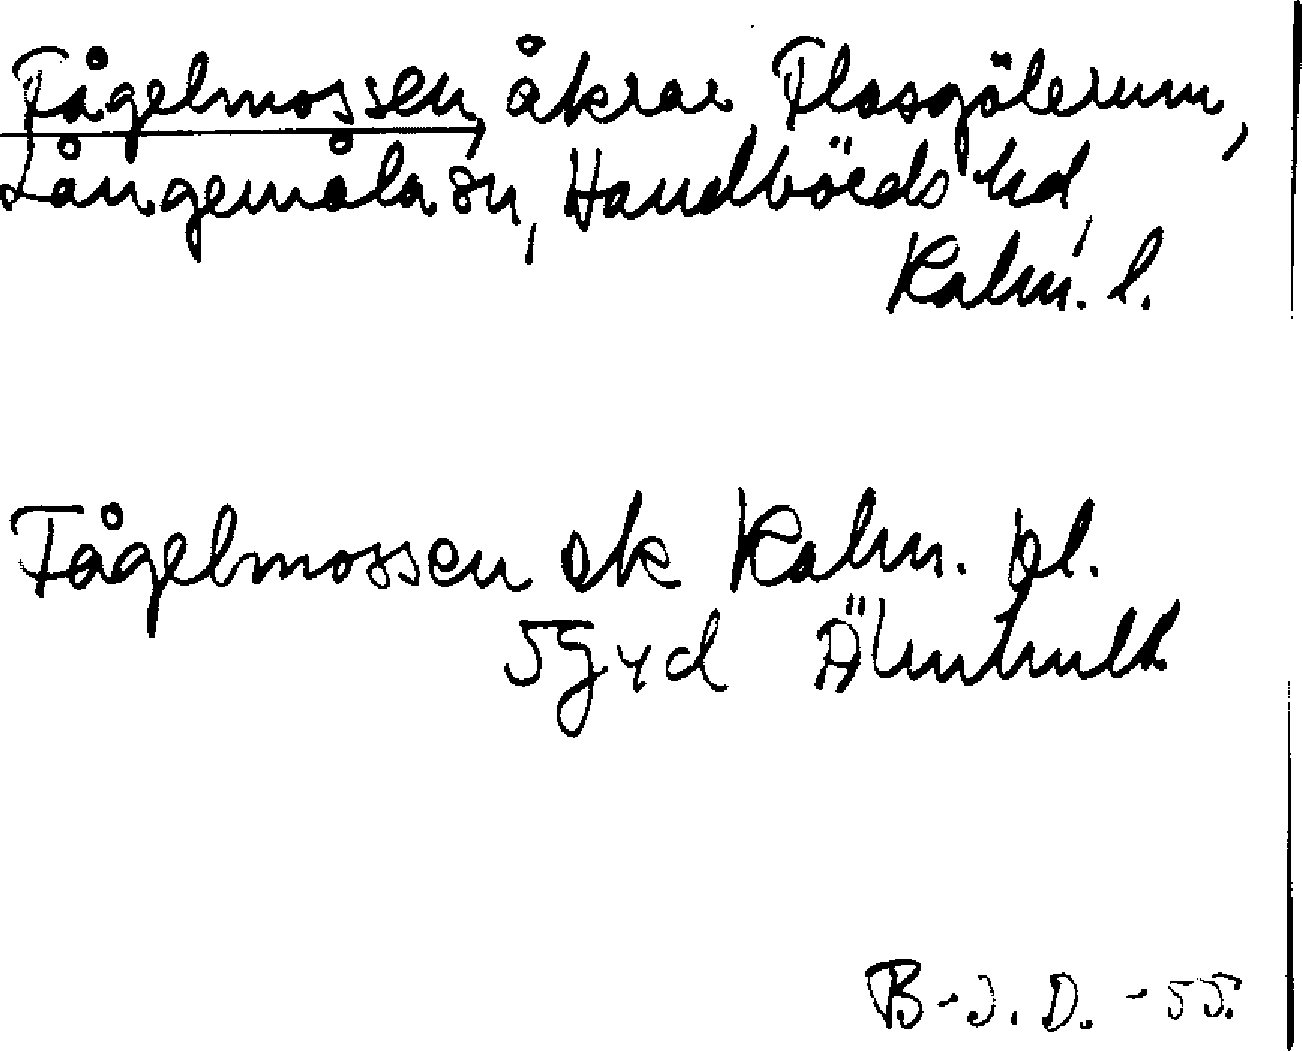 Fågelmossen, åkrar, Flasgölerum,
Långemåla sn, Handbörds hd,
Kalm. l.
Fågelmossen ek Kalm. bl.
5G yd Älmhult
B-J. D. -55.